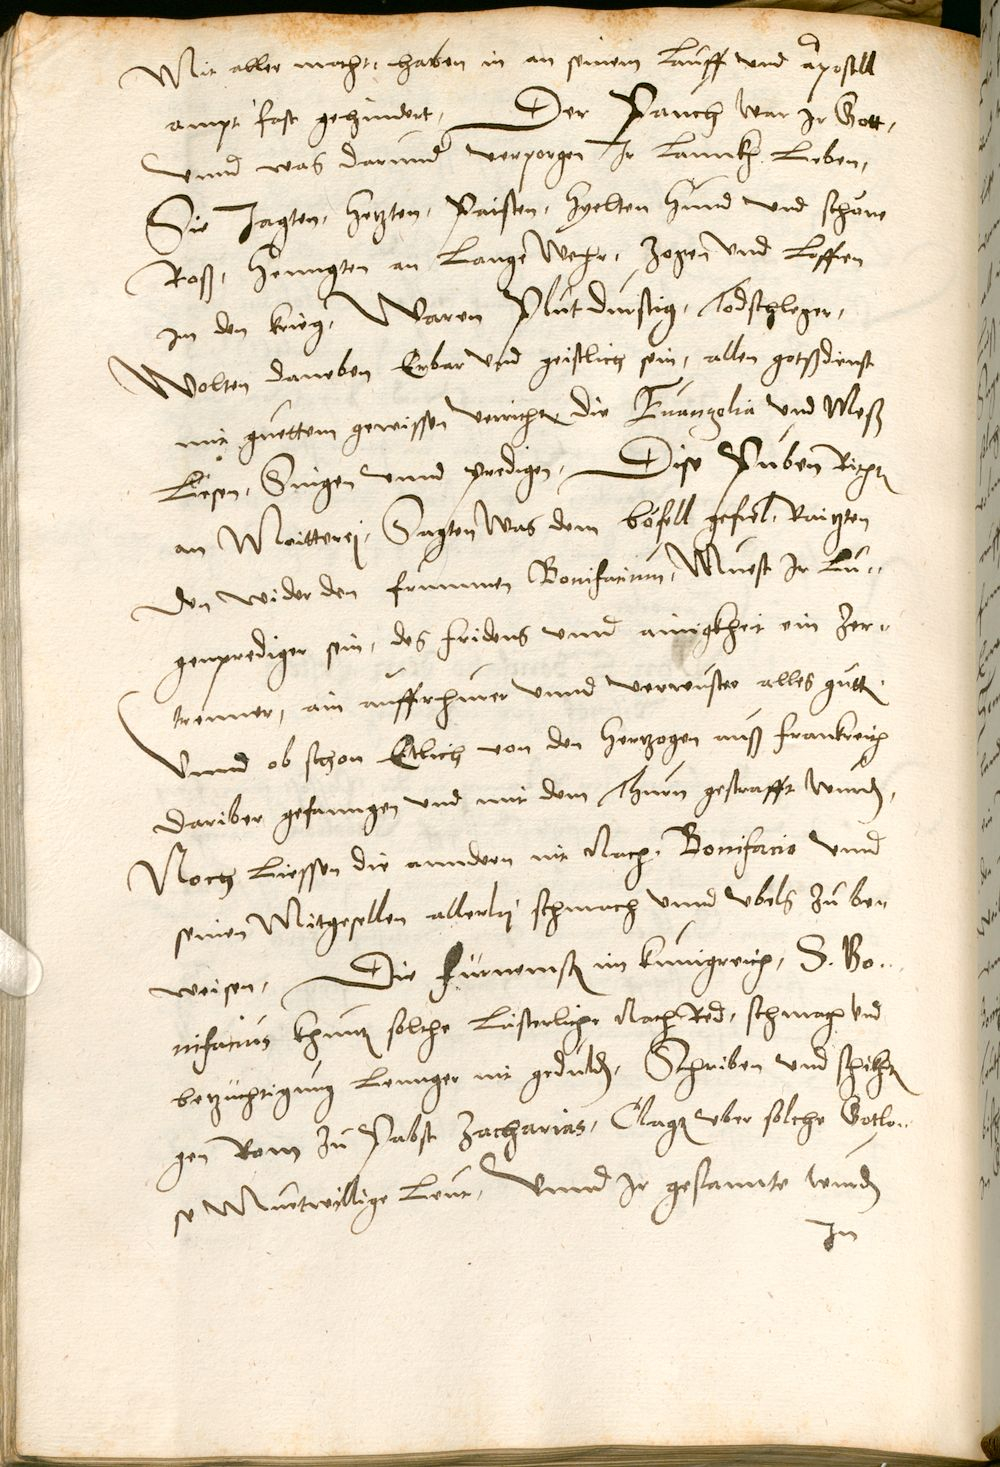 Mit aller macht, haben in an seinem Lauff und Apostll
ampt fast gehindert, Der Pauch war Jr Gott,
unnd was darund verporgen Jr Leben,
Sie Jagten, hetzten, Paisten, hyelten hund und schöne
Roß, henngten an Lange Wehr, Zogen und Loffen
jn den krieg, Waren Plutdurstig, Todschleger,
Wolten daneben Erbar und geistlich sein, allen gotsdienst
mit guettem gewissen verrichten die Evangelia und Meß
Lesen, Singen unnd predigen, Dise Puben Richten
an Meitterej, Sagten Was dem böfell gefiel, Raitzten
den wider den frummen Bonifacium, Muest Jr Lu-
genprediger sein, des fridens unnd ainigkheit ein Zer-
trenner, ain auffrhurer unnd verwuster alles gutten
Unnd ob schon Etlich von den Hertzogen auß Frankreich
dariber gefanngen und mit dem Thurn gestrafft wurden,
Noch Liessen die anndern nit Nach, Bonifacio unnd
seinen Mitgesellen allerlej schmach unnd ubels Zu be-
weisen, Die Fürnemsten im Kunigreich, S. Bo-
nifacius khuntten solche Lästerliche Nach Red, schmach und
betzüchtigung Lennger nit gedulden, Schriben und schikhten
gen Rom Zu Pabst Zacharias, Clagten uber solche Gotlo-
se Muetwillige Leut, Unnd Jr gesannte wurden
Jn